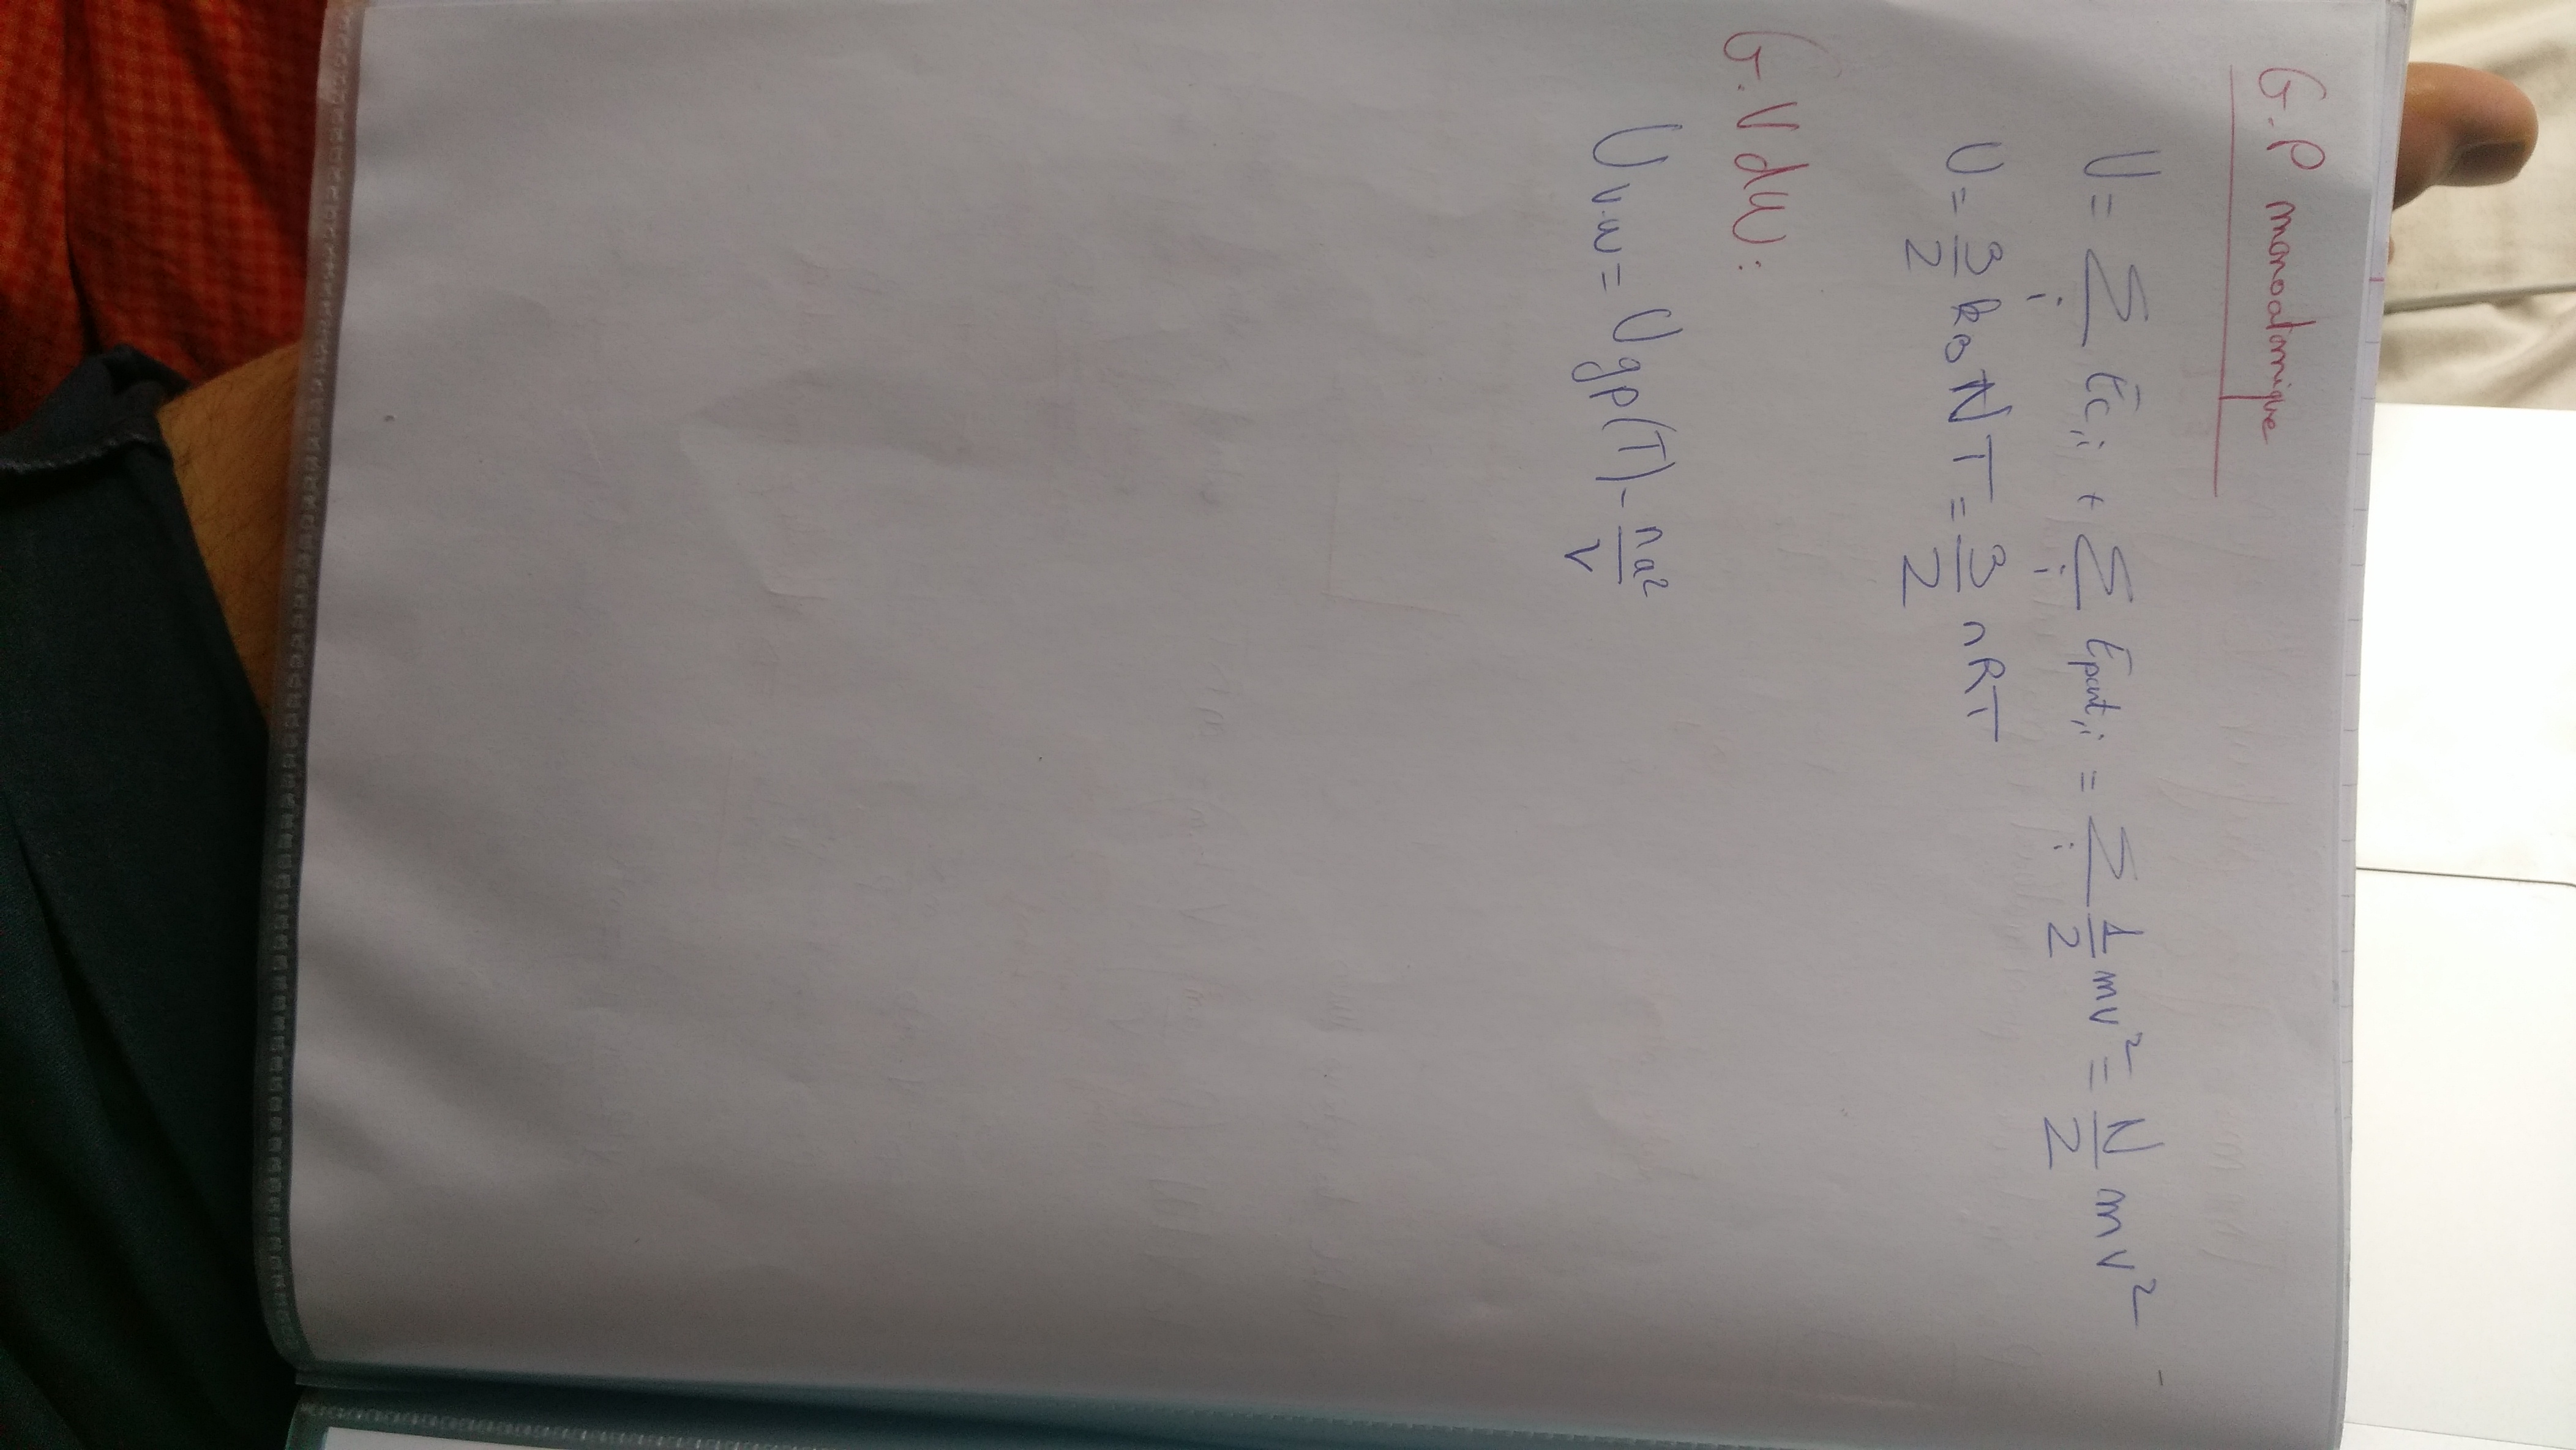 G.P monoatomique
U = ∑i Ec,i + ∑i Epart,i = ∑i 1/2 mv² = N/2 mv²
U = 3/2 kB N T = 3/2 nRT
G.VdW:
Uv.w = Ugp(T) - na²/V